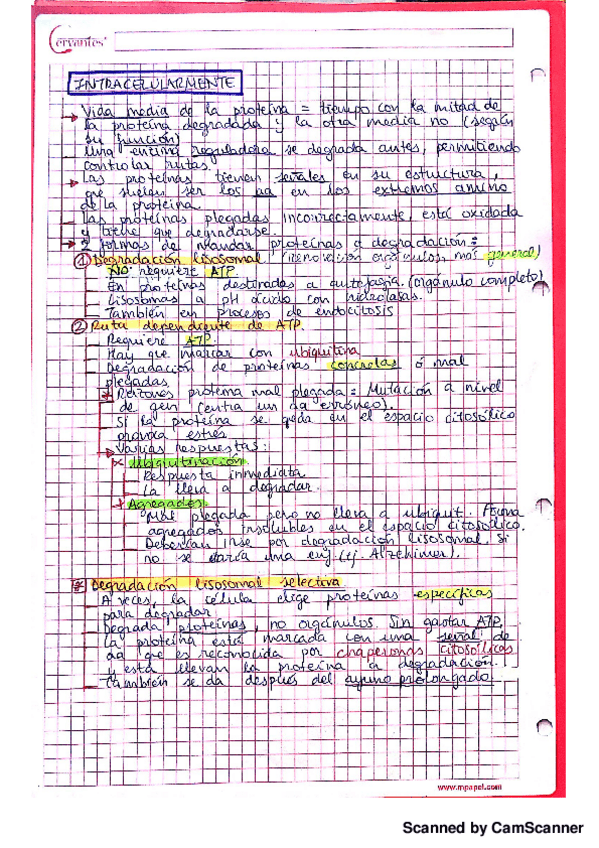 Cervantes
INTRACELULARMENTE
Vida media de la proteína = tiempo con la mitad de
la proteína degradada y la otra media no (según
su función)
Una enzima reguladora se degrada antes, permitiendo
controlar rutas.
Las proteínas tienen señales en su estructura,
que suelen ser los aa en los extremos amino
de la proteína.
Las proteínas plegadas incorrectamente, está oxidada
y tiene que degradarse.
2 formas de mandar proteínas a degradación:
① Degradación lisosomal (renovación orgánulos, más general)
NO requiere ATP.
En proteínas destinadas a autofagia. (orgánulo completo)
Lisosomas a pH ácido con hidrolasas.
También en procesos de endocitosis
② Ruta dependiente de ATP.
Requiere ATP.
Hay que marcar con ubiquitina
Degradación de proteínas concretas ó mal
plegadas
* Razones proteína mal plegada = Mutación a nivel
de gen (entra un aa erróneo).
Si la proteína se queda en el espacio citosólico
provoca estrés
Varias respuestas:
* Ubiquitinación
Respuesta inmediata
La lleva a degradar.
* Agregados
Mal plegada pero no lleva a ubiquit. Forma
agregados insolubles en el espacio citosólico.
Deberían irse por degradación lisosomal. Si
no se daría una enf. (ej. Alzehimer).
* Degradación lisosomal selectiva
A veces, la célula elige proteínas específicas
para degradar
Degrada proteínas, no orgánulos. Sin gastar ATP.
La proteína está marcada con una señal de
aa que es reconocida por chaperonas citosólicas
y esta llevan la proteína a degradación.
También se da después del ayuno prolongado
www.mpapel.com
Scanned by CamScanner